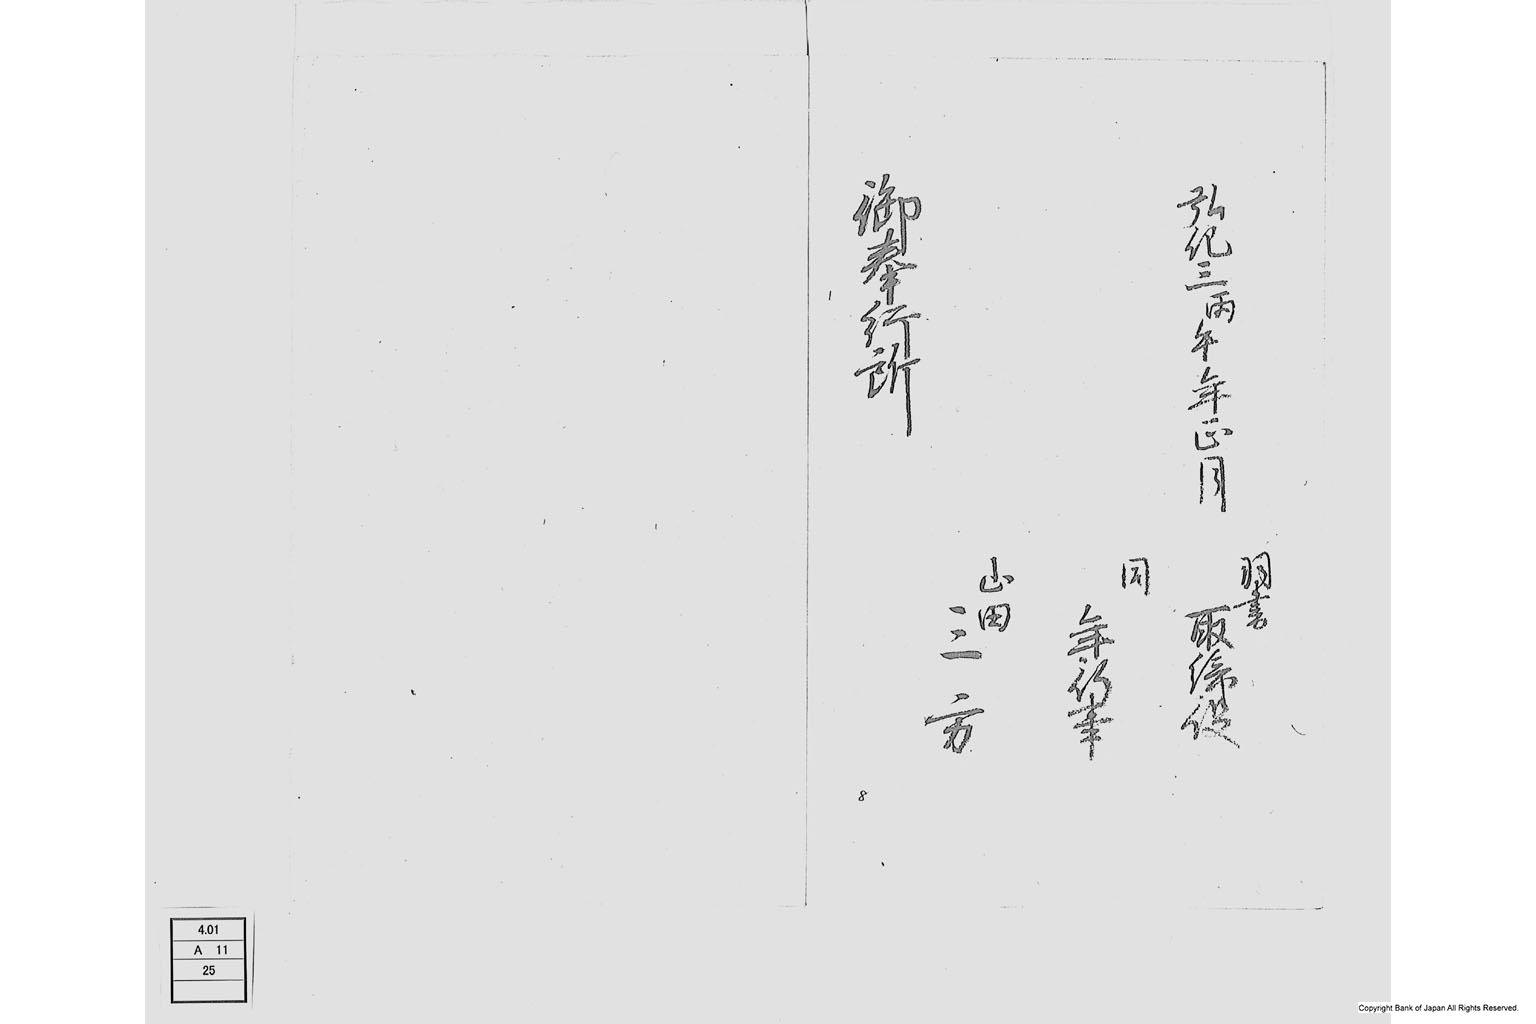 弘化三丙午年正月
羽書
取締役
同
年行事
山田
三方
御奉行所
8
4.01
A 11
25
Copyright Bank of Japan All Rights Reserved.